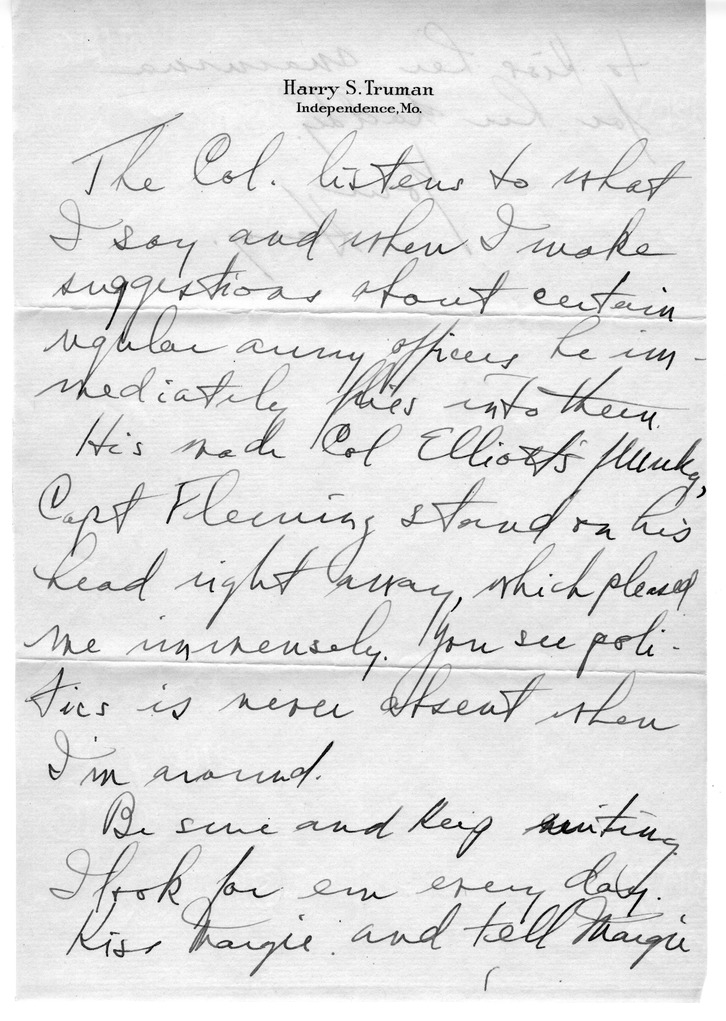 Harry S. Truman
Independence, Mo.
The Col. listens to what
I say and when I make
suggestions about certain
regular army officers he im-
mediately flies into them.
His made Col Elliott's flunky,
Capt Fleming stand on his
head right away, which pleased
me immensely. You see poli-
tics is never absent when
I'm around.
Be sure and keep writing
I look for em every day.
Kiss Margie and tell Margie